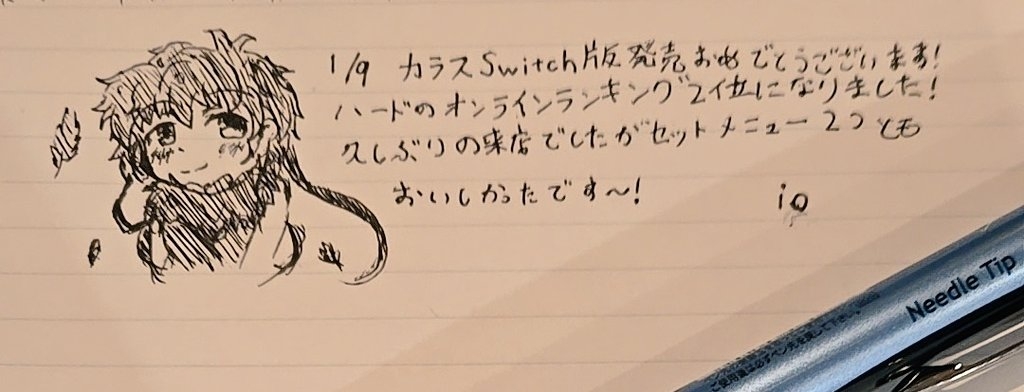 1/9 カラスSwitch版発売おめでとうございます!
ハードのオンラインランキング2位になりました!
久しぶりの来店でしたがセットメニュー2つとも
おいしかったです〜!
io
Needle Tip